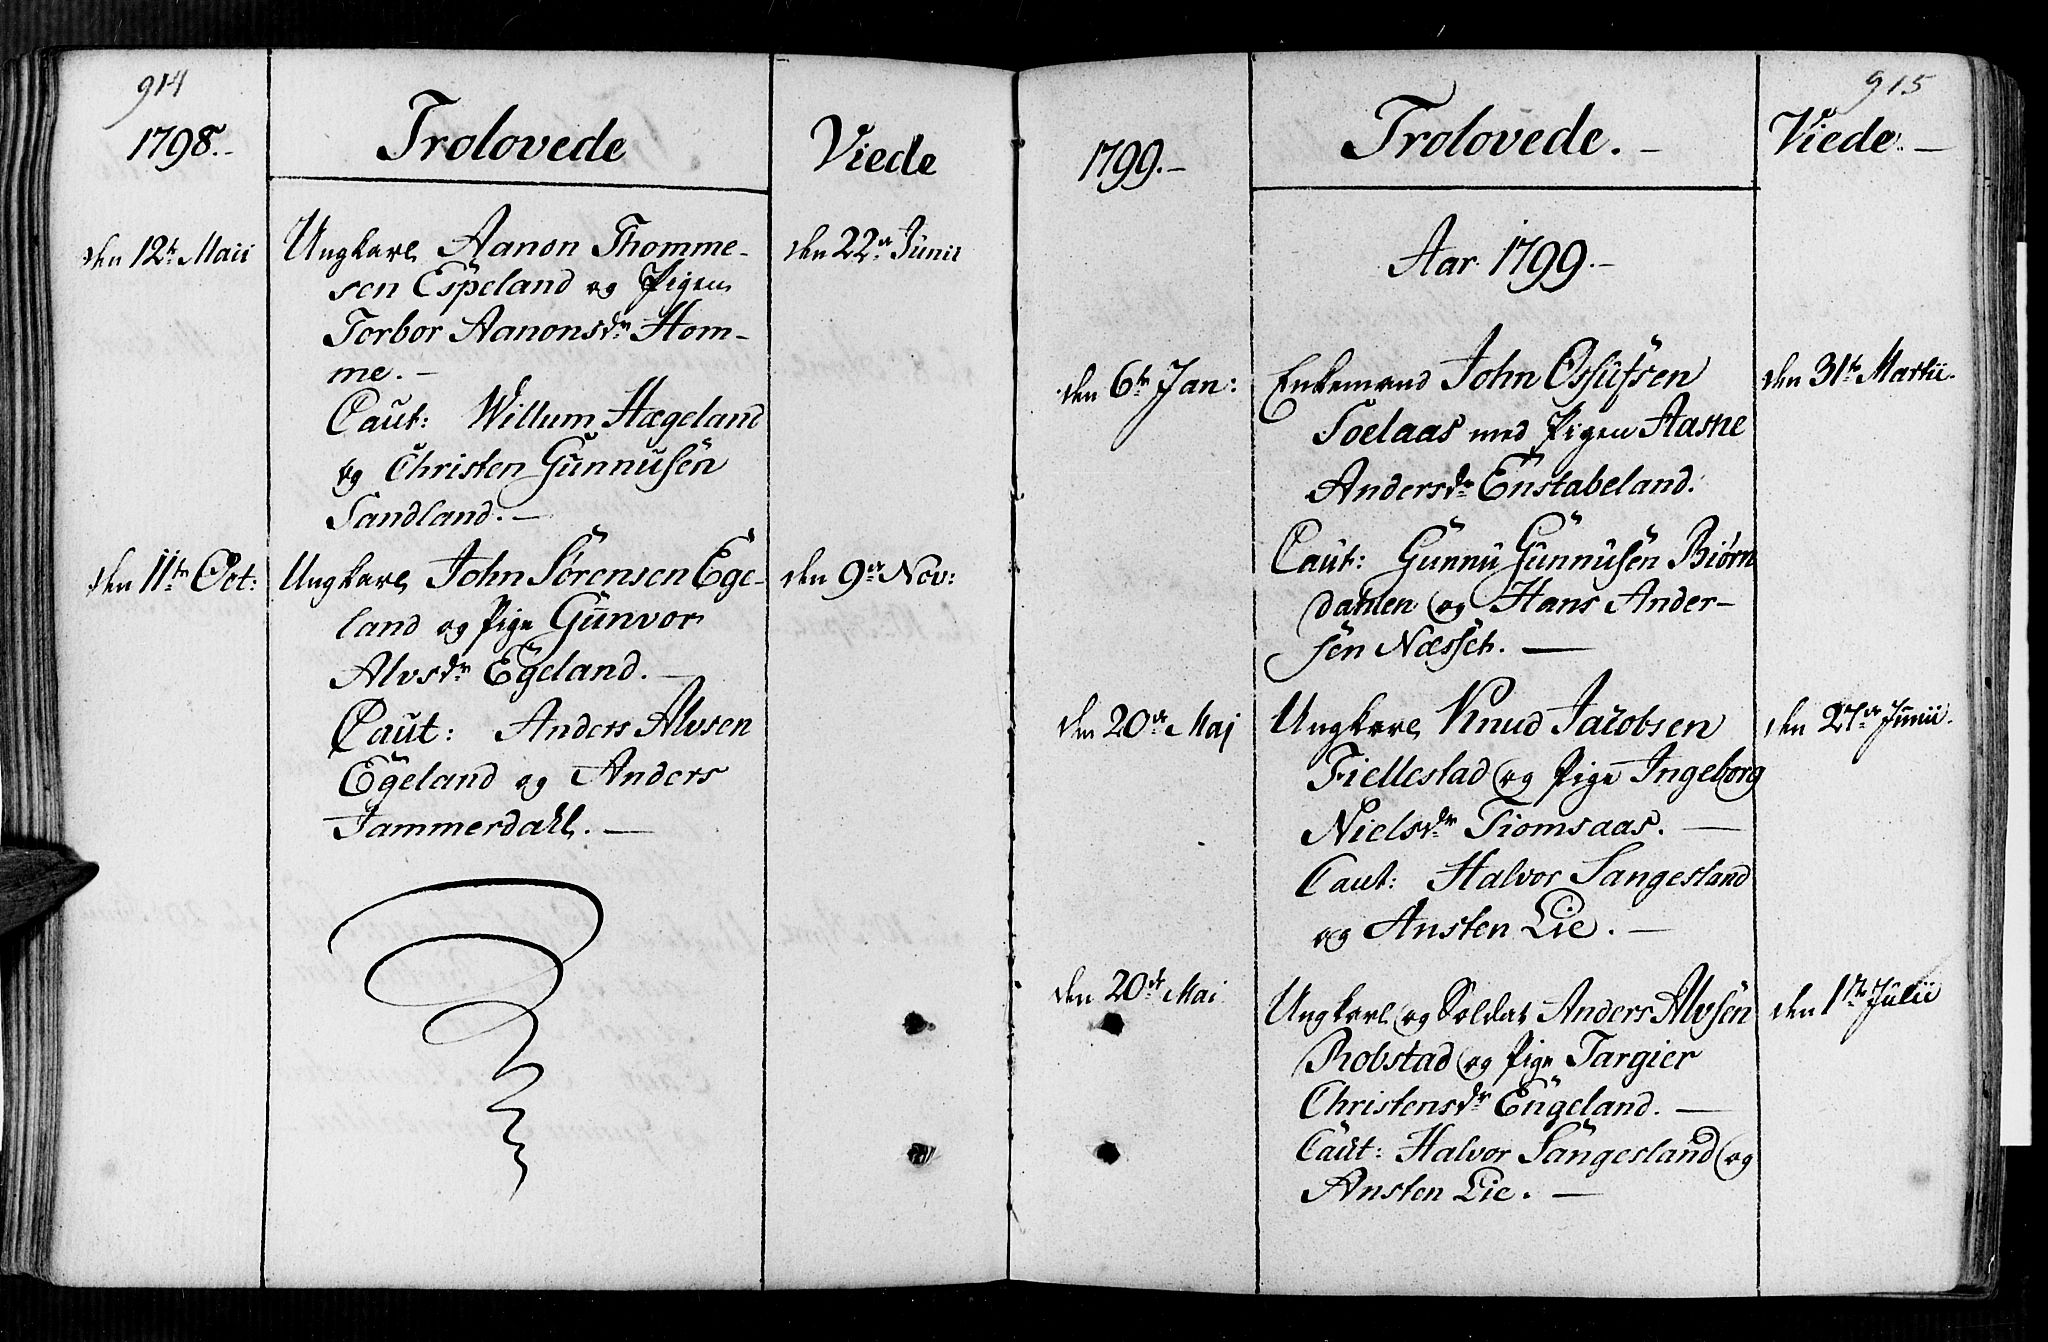 914
1798.-
Trolovede
Viede
den 12te Maii
Ungkarl Aanon Thomme-
sen Espeland og Pigen
Torbor Aanonsdr Hom-
me. -
Caut: Willum Hægeland
og Christen Gunnusen
Sandland. -
den 22de Junii
den 11te Oct:
Ungkarl John Sørensen Ege-
land og Pige Gunvor
Alvsdr Egeland. -
Caut: Anders Alvsen
Egeland og Anders
Jammerdahl. -
den 9de Nov:
915
1799.-
Trolovede. -
Viede. -
Aar 1799.-
den 6te Jan:
Enkemand John Ossufsen
Soelaas med Pigen Aasne
Andersdr Enstabeland.
Caut: Gunnu Gunnusen Biørn
dahlen og Hans Ander-
sen Næsset. -
den 31te Martii.
den 20de Maj
Ungkarl Knud Jacobsen
Fiellestad og Pige Ingeborg
Nielsdr Tiomsaas. -
Caut: Halvor Sangesland
og Ansten Lie. -
den 27de Junii.
den 20de Mai
Ungkarl og Soldat Anders Alvsen
Robstad og Pige Targier
Christensdr Engeland. -
Caut: Halvor Sangesland og
Ansten Lie. -
den 1te Julii